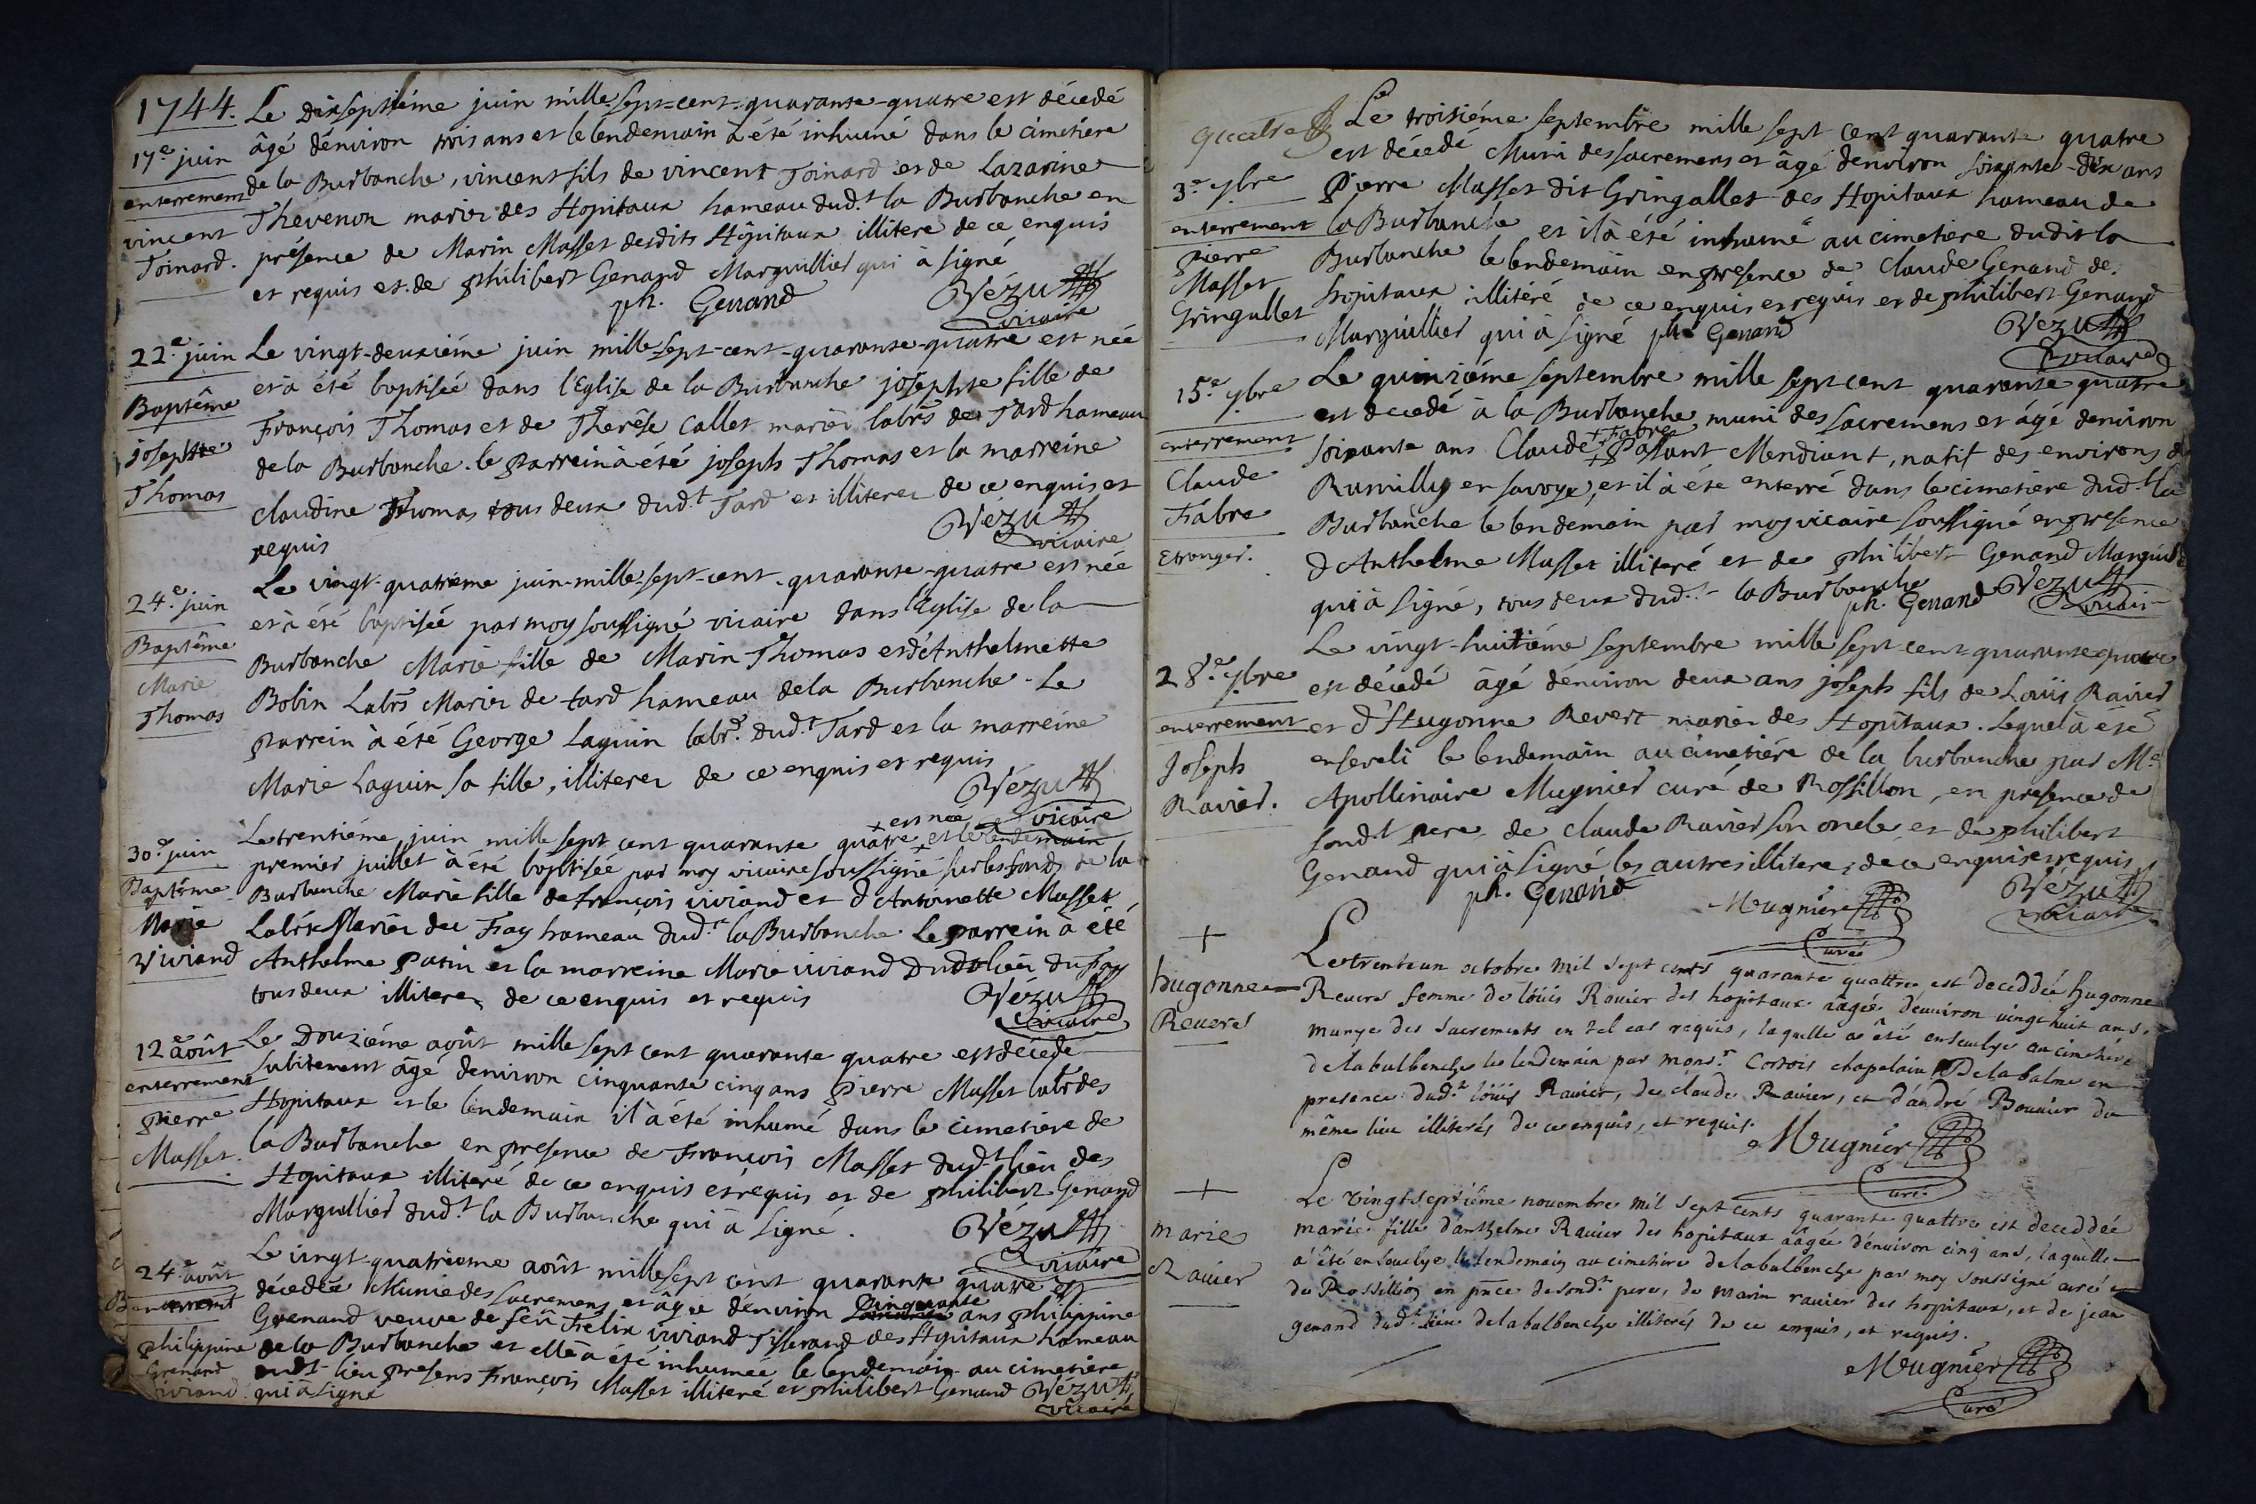 1744.
17.e juin
enterrement
vincent
Toinard.
Le dixseptiéme juin mille-sept-cent-quarante-quatre est décedé
âgé dénviron trois ans et le lendemain à été inhumé dans le cimetiere
de la Burbanche, vincent fils de vincent Toinard et de Lazarine
Thevenon mariez des Hopitaux hameau dud.t la Burbanche en
présence de Marin Masset desdits Hôpitaux illitere de ce enquis
et requis et de philibert Genand Marguillier qui à signé
ph. Genand Vézu
vicaire
22.e juin
Baptême
josephte
Thomas
Le vingt-deuxiéme juin mille-sept-cent-quarante-quatre est née
et à été baptisée dans l'Eglise de la Burbanche josephte fille de
François Thomas et de Therése Callet mariéz labrs de Tard hameau
de la Burbanche. le parrein à été joseph Thomas et la marreine
Claudine Thomas tous deux dud.t Tard et illiterez de ce enquis et
requis
Vézu
vicaire
24.e juin
Baptême
Marie
Thomas
Le vingt-quatriéme juin-mille-sept-cent-quarante-quatre est née
et à été baptisée par moy soussigné vicaire dans l'Eglise de la
Burbanche Marie fille de Marin Thomas et d'Anthelmette
Bobin Labrs Mariez de tard hameau de la Burbanche. Le
parrein à été George Laguin labr. dud.t Tard et la marreine
Marie Laguin sa fille, illiterez de ce enquis et requis
Vézu
vicaire
30.e juin
Baptême
Marie
Viviand
Le trentiéme juin mille sept cent quarante quatre + est née et le lendemain
premier juillet à été baptisée par moy vicaire soussigné sur les fonds de la
Burbanche Marie fille de françois viviand et d'Antoinette Masset
Labrs Mariéz du Fay hameau dud.t la Burbanche. Le parrein à été
Anthelme Patin et la marreine Marie viviand dud lieu du fay
tous deux illiterez de ce enquis et requis
Vézu
vicaire
12.e août
enterrement
Pierre
Masset.
Le Douziéme août mille sept cent quarante quatre est décedé
subitement âgé denviron cinquante cinq ans Pierre Masset labr des
Hopitaux et le lendemain il à été inhumé dans le cimetiere de
la Burbanche en presence de François Masset dud.t lieu des
Hopitaux illiteré de ce enquis et requis et de philibert Genand
Marguillier dud.t la Burbanche qui à signé.
Vézu
vicaire
24.e août
enterremt
philippine
Grenand
viviand
Le vingt-quatriéme août mille sept cent quarante quatre est
décedée Munie des sacremens et âgée dénviron Cinquante ans philippine
Grenand veuve de feû Felix viviand Tisserand des Hôpitaux hameau
de la Burbanche et elle à été inhumée le lendemain au cimetiere
dudt lieu presens François Masset illiteré et philibert Genand
qui à signé
Vézu
vicaire
quatre
3.e 7bre
enterrement
Pierre
Masset
Gringallet
Le troisiéme septembre mille sept cent quarante quatre
est décedé Muni des sacremens et âgé denviron soixante-dix ans
Pierre Masset dit Gringallet des Hopitaux hameau de
la Burbanche et il à été inhumé au cimetiere dudit la
Burbanche le lendemain en presence de Claude Genand des
hopitaux illitéré de ce enquis et requis et de philibert Genand
Marguillier qui à signé ph. Genand
Vézu
vicaire
15.e 7bre
enterrement
Claude
Fabre
Etranger.
Le quinziéme septembre mille sept cent quarante quatre
est decedé à la Burbanche muni des sacremens et âgé denviron
soixante ans Claude + Fabre + Passant Mendiant, natif des environs de
Rumilly en savoye, et il à été enterré dans le cimetiere dud.t la
Burbanche le lendemain par moy vicaire soussigné en presence
d'Anthelme Masset illiteré et de philibert Genand Marguil
qui à signé, tous deux dud.t la Burbanche
ph. Genand Vézu
vicair
28.e 7bre
enterrement
Joseph
Ravier.
Le vingt-huitiéme septembre mille sept-cent-quarante quatre
est décedé âgé dénviron deux ans joseph fils de Loüis Ravier
et d'Hugonne Revert mariez des Hopitaux. Lequel à été
enseveli le lendemain au cimetiére de la burbanche par M.e
Apollinaire Mugnier curé de Rossillon, en presence de
sond.t pere, de Claude Ravier son oncle et de philibert
Genand qui à signé les autres illiterez de ce enquis et requis
ph. Genand Mugnier
Curé
Vézu
vicaire
+
hugonne
Reverd
Le trente un octobre mil sept cents quarante quattre est deceddée hugonne
Reverd femme de loüis Ravier des hopitaux aâgée d'environ vingt huit ans,
munye des sacrements en tel cas requis, laquelle a êté ensevelye au cimetiére
de la balbenche le lendemain par mons.r Cortois chapelain De la balme en
presence dud.t loüis Ravier, de claude Ravier, et d'andré Bouvier du
même lieu illiterés de ce enquis, et requis.
Mugnier
Curé
+
marie
Ravier
Le vingt septiême novembre mil sept cents quarante quattre est deceddée
marie fille d'anthelme Ravier des hopitaux aâgée d'environ cinq ans, laquelle
a êté ensevelye le lendemain au cimetiere de la balbenche par moy soussigné curé
de Rossillion en pnce de sond.t pere, de marin ravier des hopitaux, et de jean
genand dud.t lieu de la balbenche illiterés de ce enquis, et requis.
Mugnier
Curé